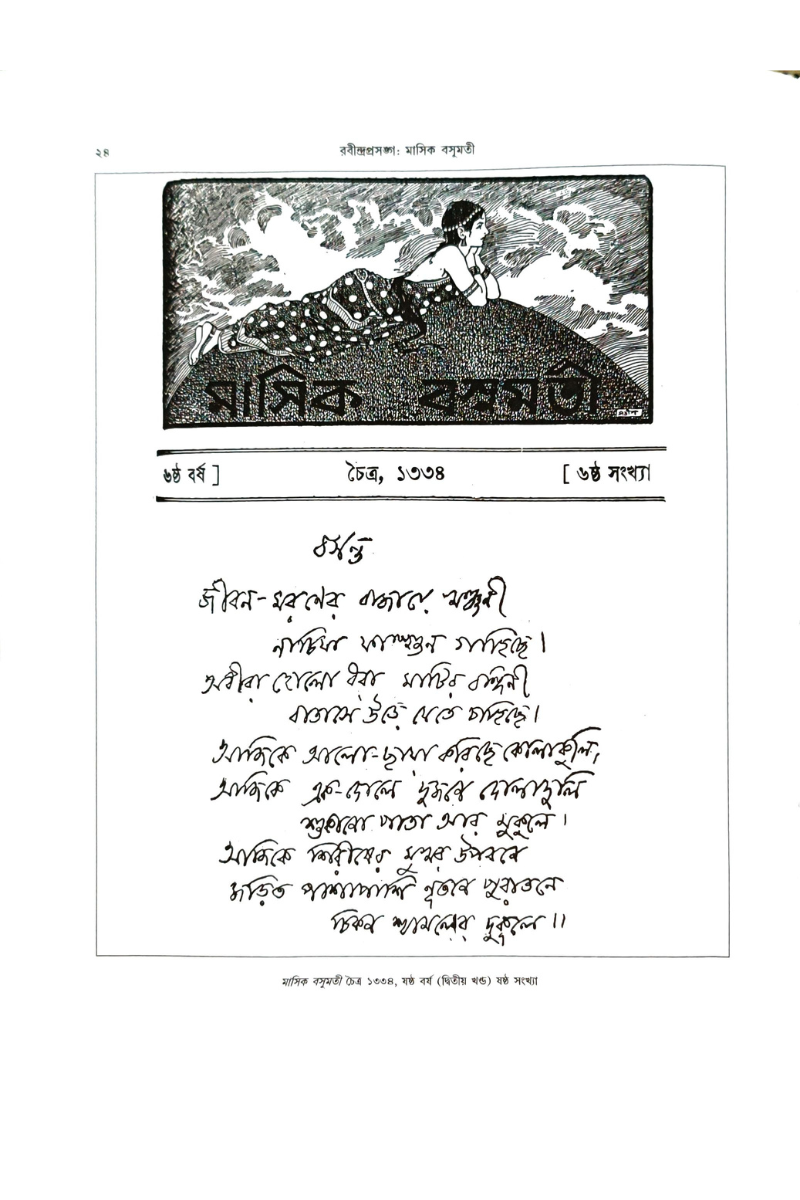 ২৪
রবীন্দ্রপ্রসঙ্গ: মাসিক বসুমতী
মাসিক বসুমতী
৬ষ্ঠ বর্ষ ]
চৈত্র, ১৩৩৪
[ ৬ষ্ঠ সংখ্যা
বসন্ত
জীবন-মরণের বাজায়ে খঞ্জনী
নাচিয়া ফাল্গুন গাহিছে।
অধীরা হোলো ধরা মাটির বন্দিনী
বাতাসে উড়ে যেতে চাহিছে।
আজিকে আলো-ছায়া করিছে কোলাকুলি,
আজিকে এক-দোলে দুজনে দোলাদুলি
শুকানো পাতা আর মুকুলে।
আজিকে শিরীষের মুখর উপবনে
জড়িত পাশাপাশি নূতনে পুরাতনে
চিকন শ্যামলের দুকূলে॥
মাসিক বসুমতী চৈত্র ১৩৩৪, ষষ্ঠ বর্ষ (দ্বিতীয় খণ্ড) ষষ্ঠ সংখ্যা